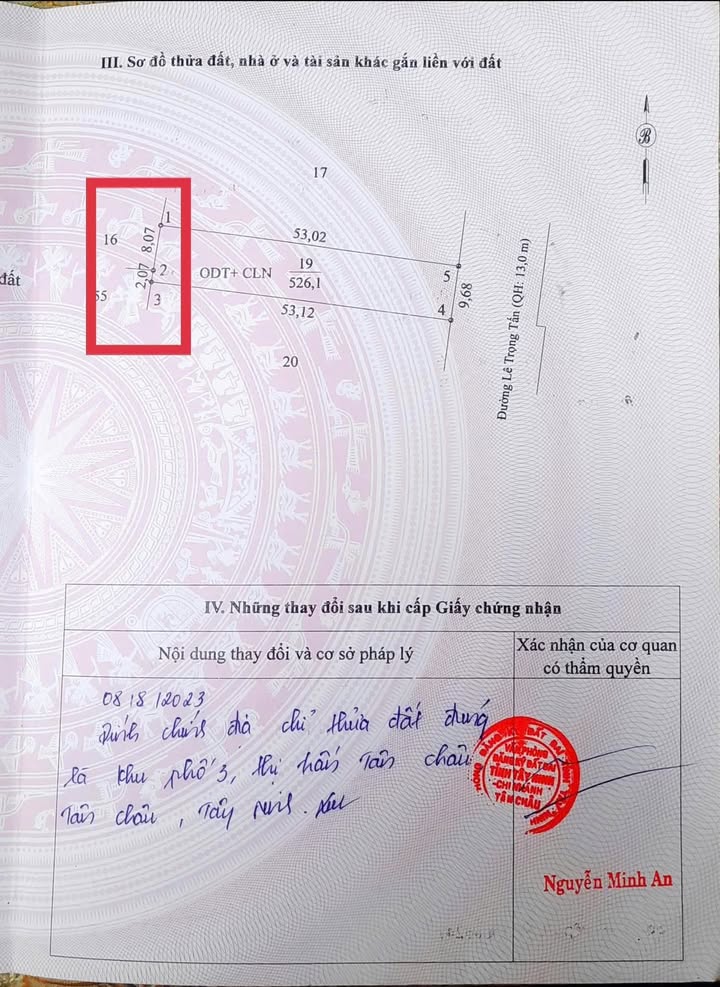 III. Sơ đồ thửa đất, nhà ở và tài sản khác gắn liền với đất
B
17
16
1
8,07
53,02
đất
2
ODT+ CLN
19
526,1
5
9,68
2,07
55
3
53,12
4
Đường Lê Trọng Tấn (QH: 13,0 m)
20
IV. Những thay đổi sau khi cấp Giấy chứng nhận
Nội dung thay đổi và cơ sở pháp lý
Xác nhận của cơ quan
có thẩm quyền
08/8/2023
Đính chính địa chỉ thửa đất đúng
là khu phố 3, thị trấn Tân Châu
Tân Châu, Tây Ninh.
VĂN PHÒNG
ĐĂNG KÝ ĐẤT ĐAI
TỈNH TÂY NINH
-CHI NHÁNH
TÂN CHÂU
Nguyễn Minh An